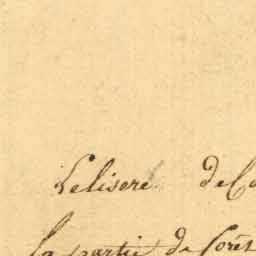 Leliseré de Co
la partie de Corêt